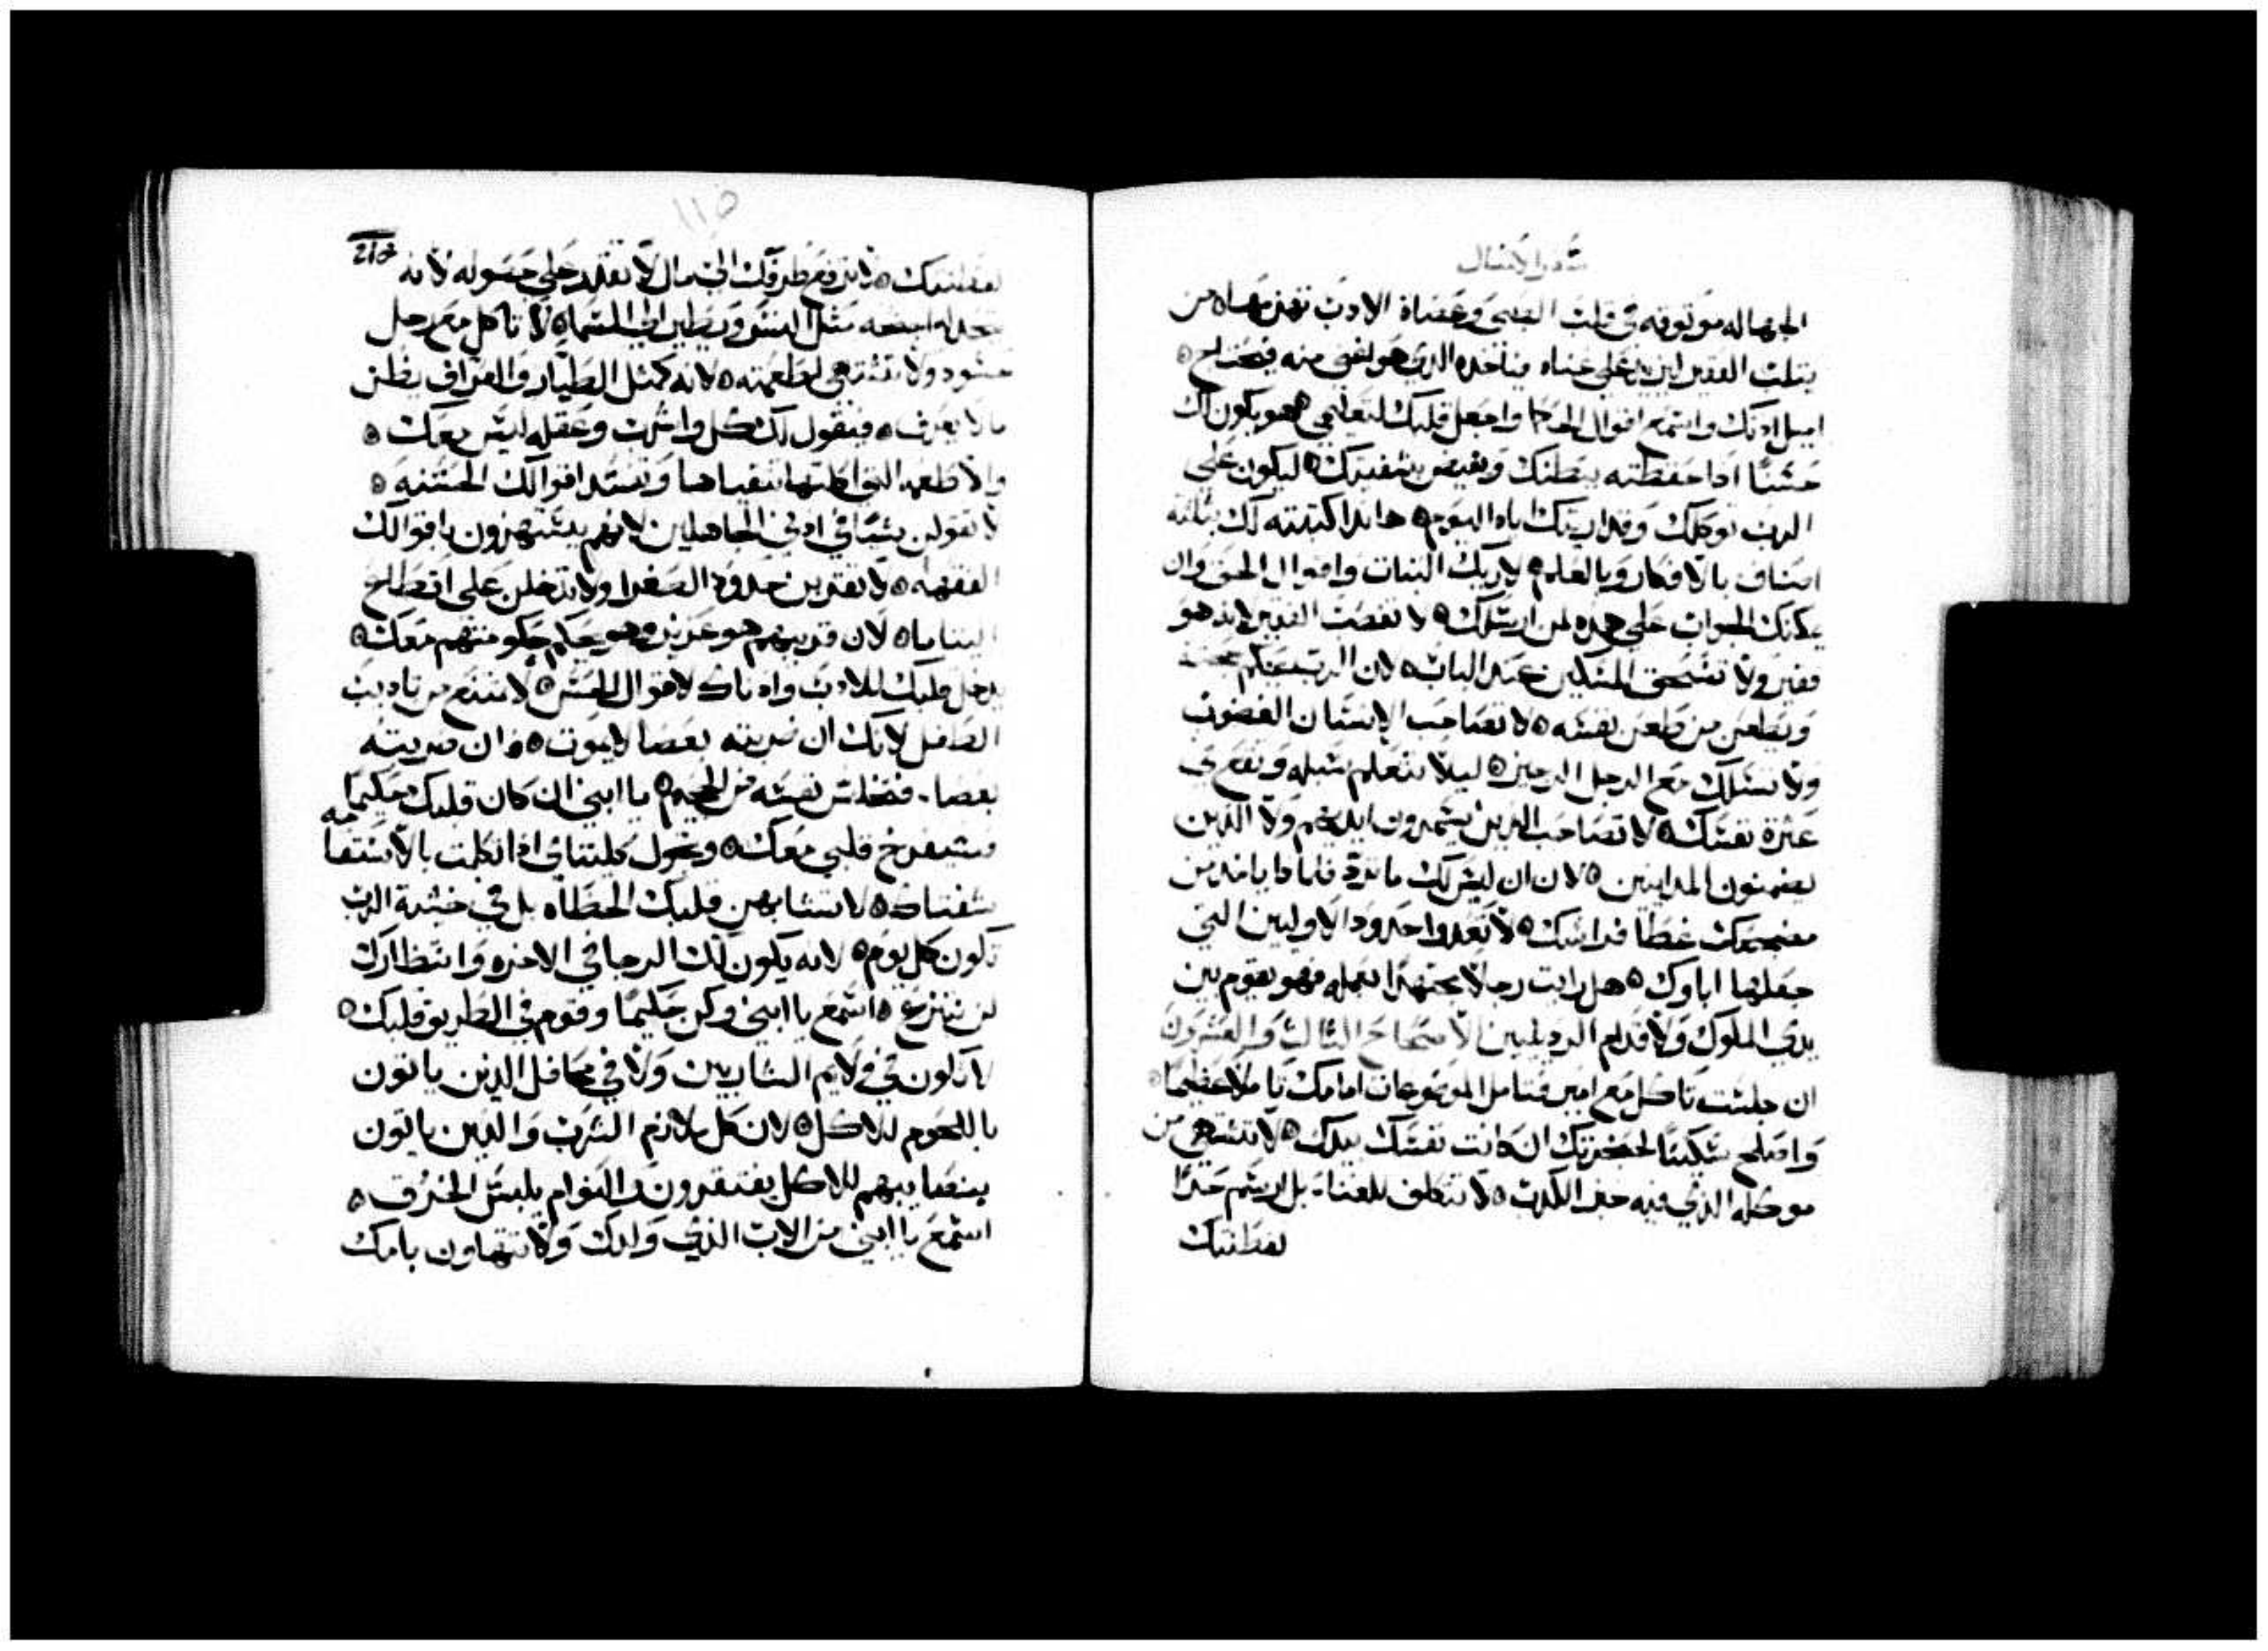 سفر الامثال
الجهاله موتوقه في قلب الصبي وعصاة الادب تهزمها من
يتلب الفقير ليزيد على غناه فياخده الذي هو اغنى منه فيحتاج
اميل ادنك واستمع اقوال الحكما واجعل قلبك لتعاليمي فهو يكون لك
حسنًا ادا حفظته ببطنك ويفيض بشفتيك ليكون على
الرب توكلك وقد اريتك اياه اليوم هاندا كتبته لك بثلثة
اصناف بالافكار وبالعلم لاريك الثبات واقوال الحق وان
يمكنك الجواب على هده لمن ارسلك لا تغصب الفقير لانه هو
فقير ولا تسحق المسكين عند الباب لان الرب يحكم
ويطعن من طعن نفسه لا تصاحب الانسان الغضوب
ولا تسلك مع الرجل الرجيز ليلا تتعلم سبله
عثرة نفسك لا تصاحب الدين يشمرون ايديهم ولا الدين
يضمنون المداينين لان ان ليس لك ما تردّ فلمادا ياخد من
مضجعك غطا فراشك لا تعدوا حدود الاولين التي
جعلها اباوك هل رايت رجلا مجتهدًا بعمله فهو يقوم بين
يدي الملوك ولا قدام الرديلين الاصحاح الثالث والعشرون
ان جلست تاكل مع امير فتامل الموضوعات امامك تاملا عظيما
واصلح سكينًا لحنجرتك ان كانت نفسك بيدك لا تشتهي من
موكله الذي فيه خبز الكدب لا تتكلف للغنا بل ارسم حدًا
لفطنتك
210
115
لفطنتك لا ترفع طرفك الى مال لا تقدر على حصوله لانه
يتخد له اجنحه مثل النسر ويطير الى السما لا تاكل مع رجل
حسود ولا تشتهي لطعمته لانه كمثل الطيّار والعرّاف يظن
ما لا يعرف فيقول لك كل واشرب وعقله ليس معك
والاطعمه التي اكلتها تتقياها وتفسد اقوالك الحسنه
لا تقولن شيًا في ادني الجاهلين لانهم يستهزون باقوالك
الفهمه لا تقتربن حدود الصغرا ولا تدخلن على اقطاع
اليتاما لان قريبهم هو عزيز وهو يحكم حكومتهم معك
يدخل قلبك للادب وادناك لاقوال الحس لا تمتنع من تاديب
الطفل لانك ان ضربته بعصا لا يموت وان ضربته
بعصا فتخلص نفسه من الجحيم يا ابني ان كان قلبك حكيمًا
فسيفرح قلبي معك وتحول كليتاي ادا تكلمت بالاستقامه
شفتاك لا تتشابهن قلبك الخطاه بل في خشية الرب
تكون كل يوم لانه يكون لك الرجا في الاخره وانتظارك
لن ينتزع استمع يا ابني وكن حكيمًا وقوم في الطريق قلبك
لا تكون في ولايم الشاربين ولا في محافل الدين ياتون
باللحوم للاكل لان كل ملازم الشرب والدين ياتون
بنصايبهم للاكل يفتقرون والنوام يلبس الخرق
استمع يا ابني من الاب الذي ولدك ولا تتهاون بامك